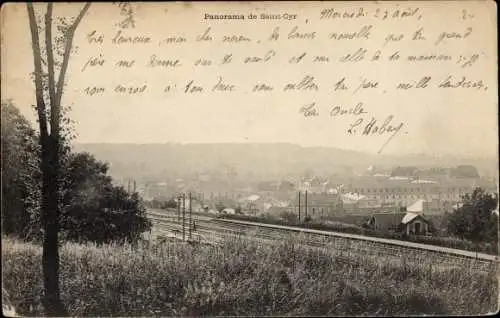 Panorama de Saint-Cyr
Mercredi 27 août,
Très heureux, mon cher neveu, de la bonne nouvelle que ton grand
père me donne sur ta santé et sur celle de ta maman; je
vous envoie à tous deux, sans oublier ton père, mille tendresses,
Ton Oncle
L.